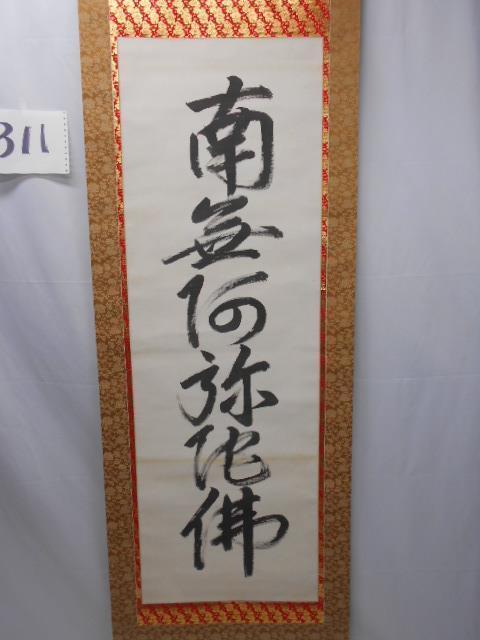 311
南無阿弥陀佛